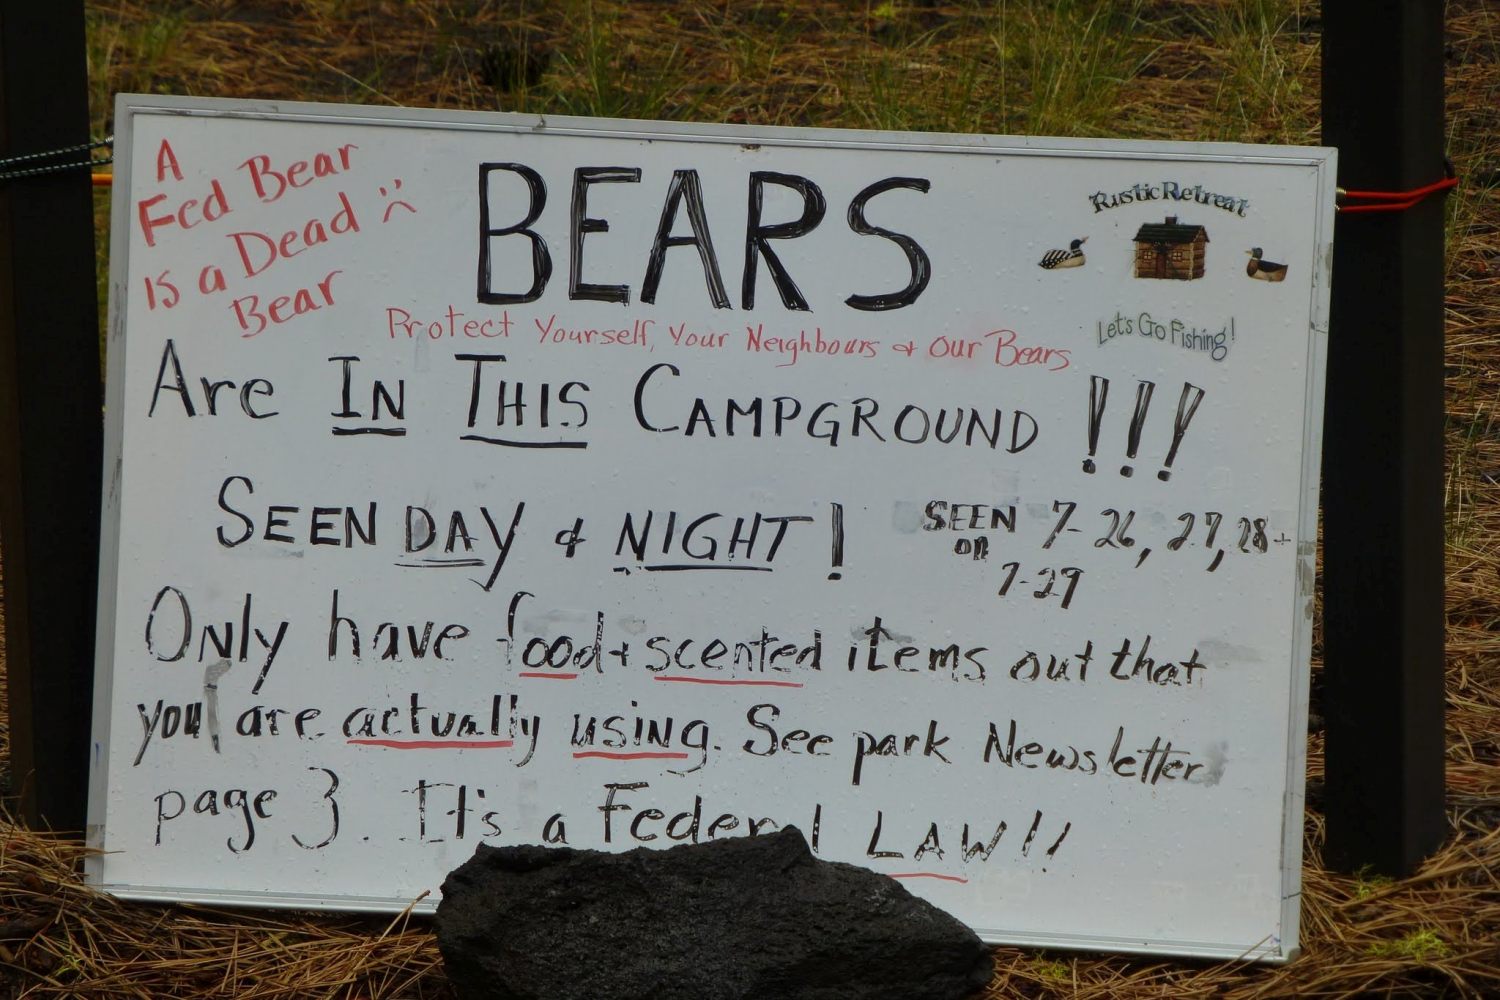 A
Fed Bear
is a Dead
Bear
BEARS
Rustic Retreat
Let's Go Fishing!
Protect Yourself, Your Neighbours & Our Bears
Are IN THIS CAMPGROUND !!!
SEEN DAY & NIGHT!
SEEN on 7-26, 27, 28+
7-29
Only have food + scented items out that
you are actually using. See park Newsletter
page 3. It's a Federal LAW!!